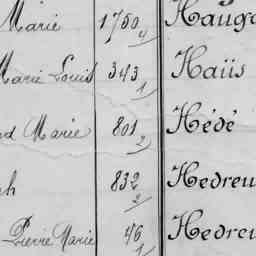 Marie 1750/4 Hauge
Marie Louis 343/1 Haüs
Marie 801/2 Hédé
832/2 Hedreu
Pierre Marie 46/1 Hedreu